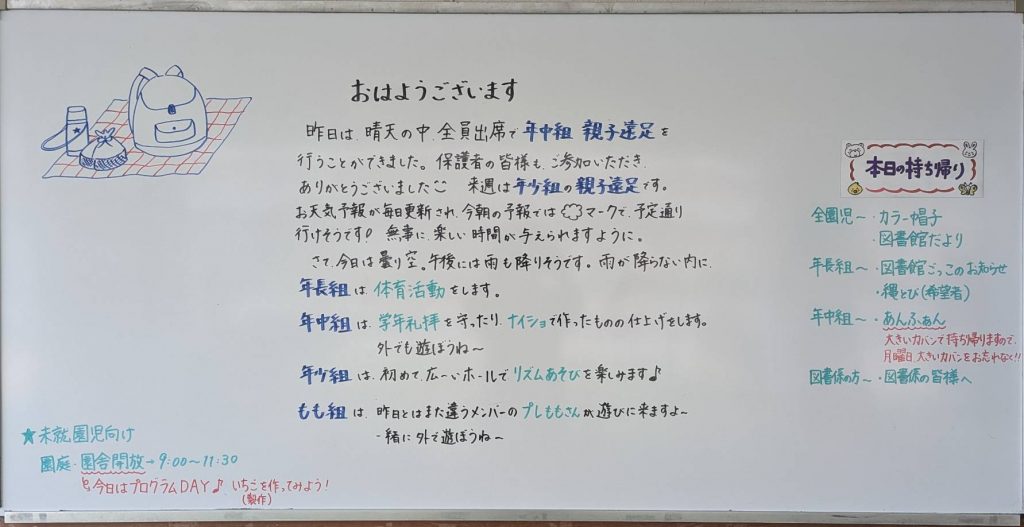 おはようございます
昨日は、晴天の中、全員出席で年中組 親子遠足を
行うことができました。保護者の皆様も、ご参加いただき、
ありがとうございました 来週は年少組の親子遠足です。
お天気予報が毎日更新され、今朝の予報では マークで、予定通り
行けそうです! 無事に、楽しい時間が与えられますように。
さて、今日は曇り空。午後には雨も降りそうです。雨が降らない内に、
年長組は、体育活動をします。
年中組は、学年礼拝を守ったり、ナイショで作ったものの仕上げをします。
外でも遊ぼうね〜
年少組は、初めて、広〜いホールでリズムあそびを楽しみます♪
もも組は、昨日とはまた違うメンバーのプレももさんが遊びに来ますよ〜
一緒に外で遊ぼうね〜
★未就園児向け
園庭・園舎開放→9:00〜11:30
今日はプログラムDAY♪ いちごを作ってみよう!
(製作)
本日の持ち帰り
全園児〜・カラー帽子
・図書館だより
年長組〜・図書館ごっこのお知らせ
・縄とび(希望者)
年中組〜・あんふぁん
大きいカバンで持ち帰りますので、
月曜日、大きいカバンをお忘れなく!!
図書係の方〜・図書係の皆様へ